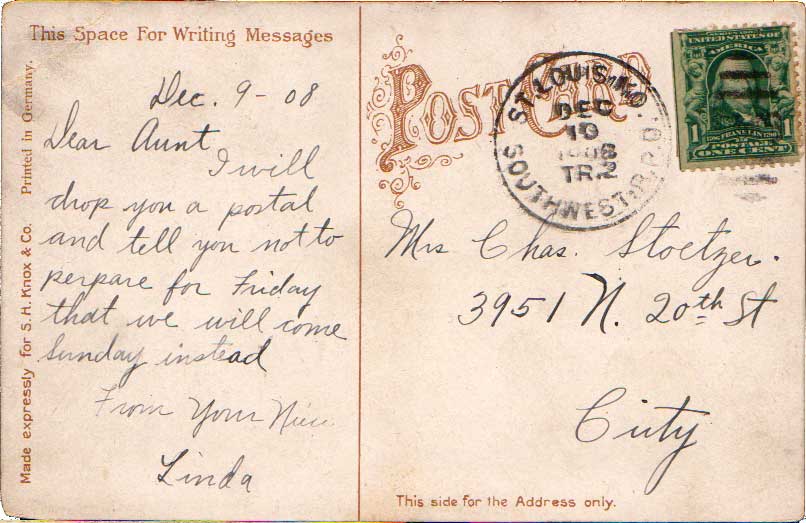 This Space For Writing Messages
Dec. 9 - 08
Dear Aunt
I will
drop you a postal
and tell you not to
perpare for Friday
that we will come
Sunday instead
From Your Niece
Linda
Made expressly for S. H. Knox & Co. Printed in Germany.
POST CARD
ST. LOUIS, MO.
DEC
10
1908
TR.2
SOUTHWEST. R.P.O.
UNITED STATES OF
1706 FRANKLIN 1790
POSTAGE
1 ONE CENT 1
Mrs Chas. Stoetzer.
3951 N. 20th St
City
This side for the Address only.